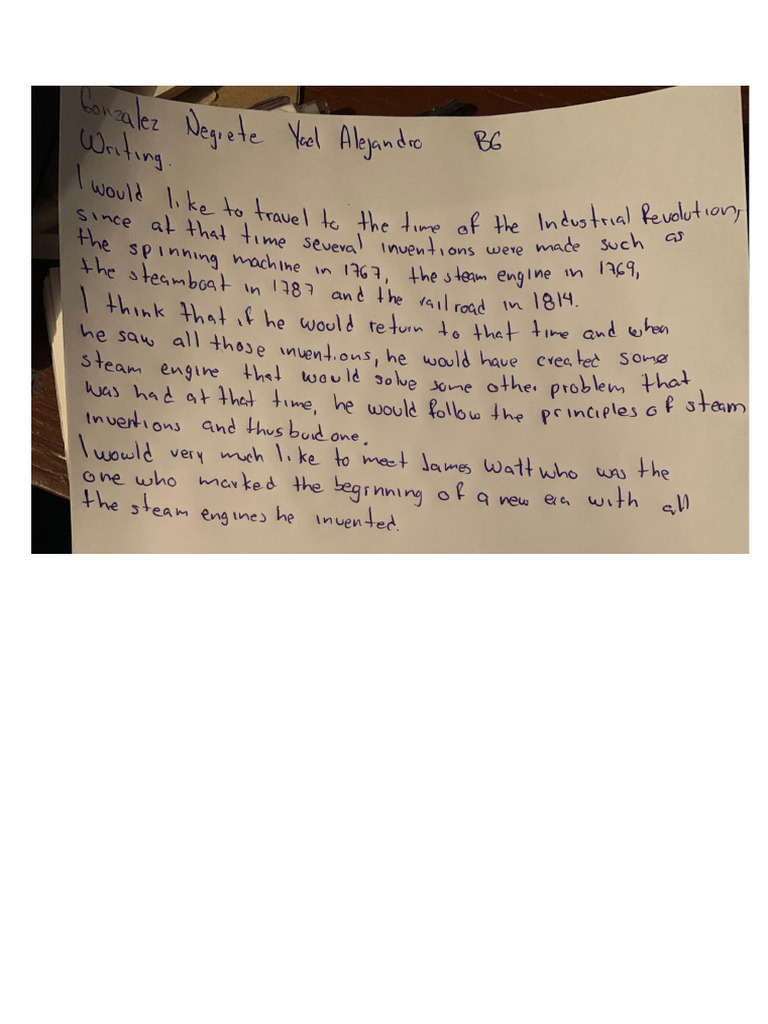 Gonzalez Negrete Yael Alejandro B6
Writing.
I would like to travel to the time of the Industrial Revolution,
since at that time several inventions were made such as
the spinning machine in 1767, the steam engine in 1769,
the steamboat in 1787 and the railroad in 1814.
I think that if he would return to that time and when
he saw all those inventions, he would have created some
steam engine that would solve some other problem that
was had at that time, he would follow the principles of steam
inventions and thus buid one.
I would very much like to meet James Watt who was the
one who marked the beginning of a new era with all
the steam engines he invented.